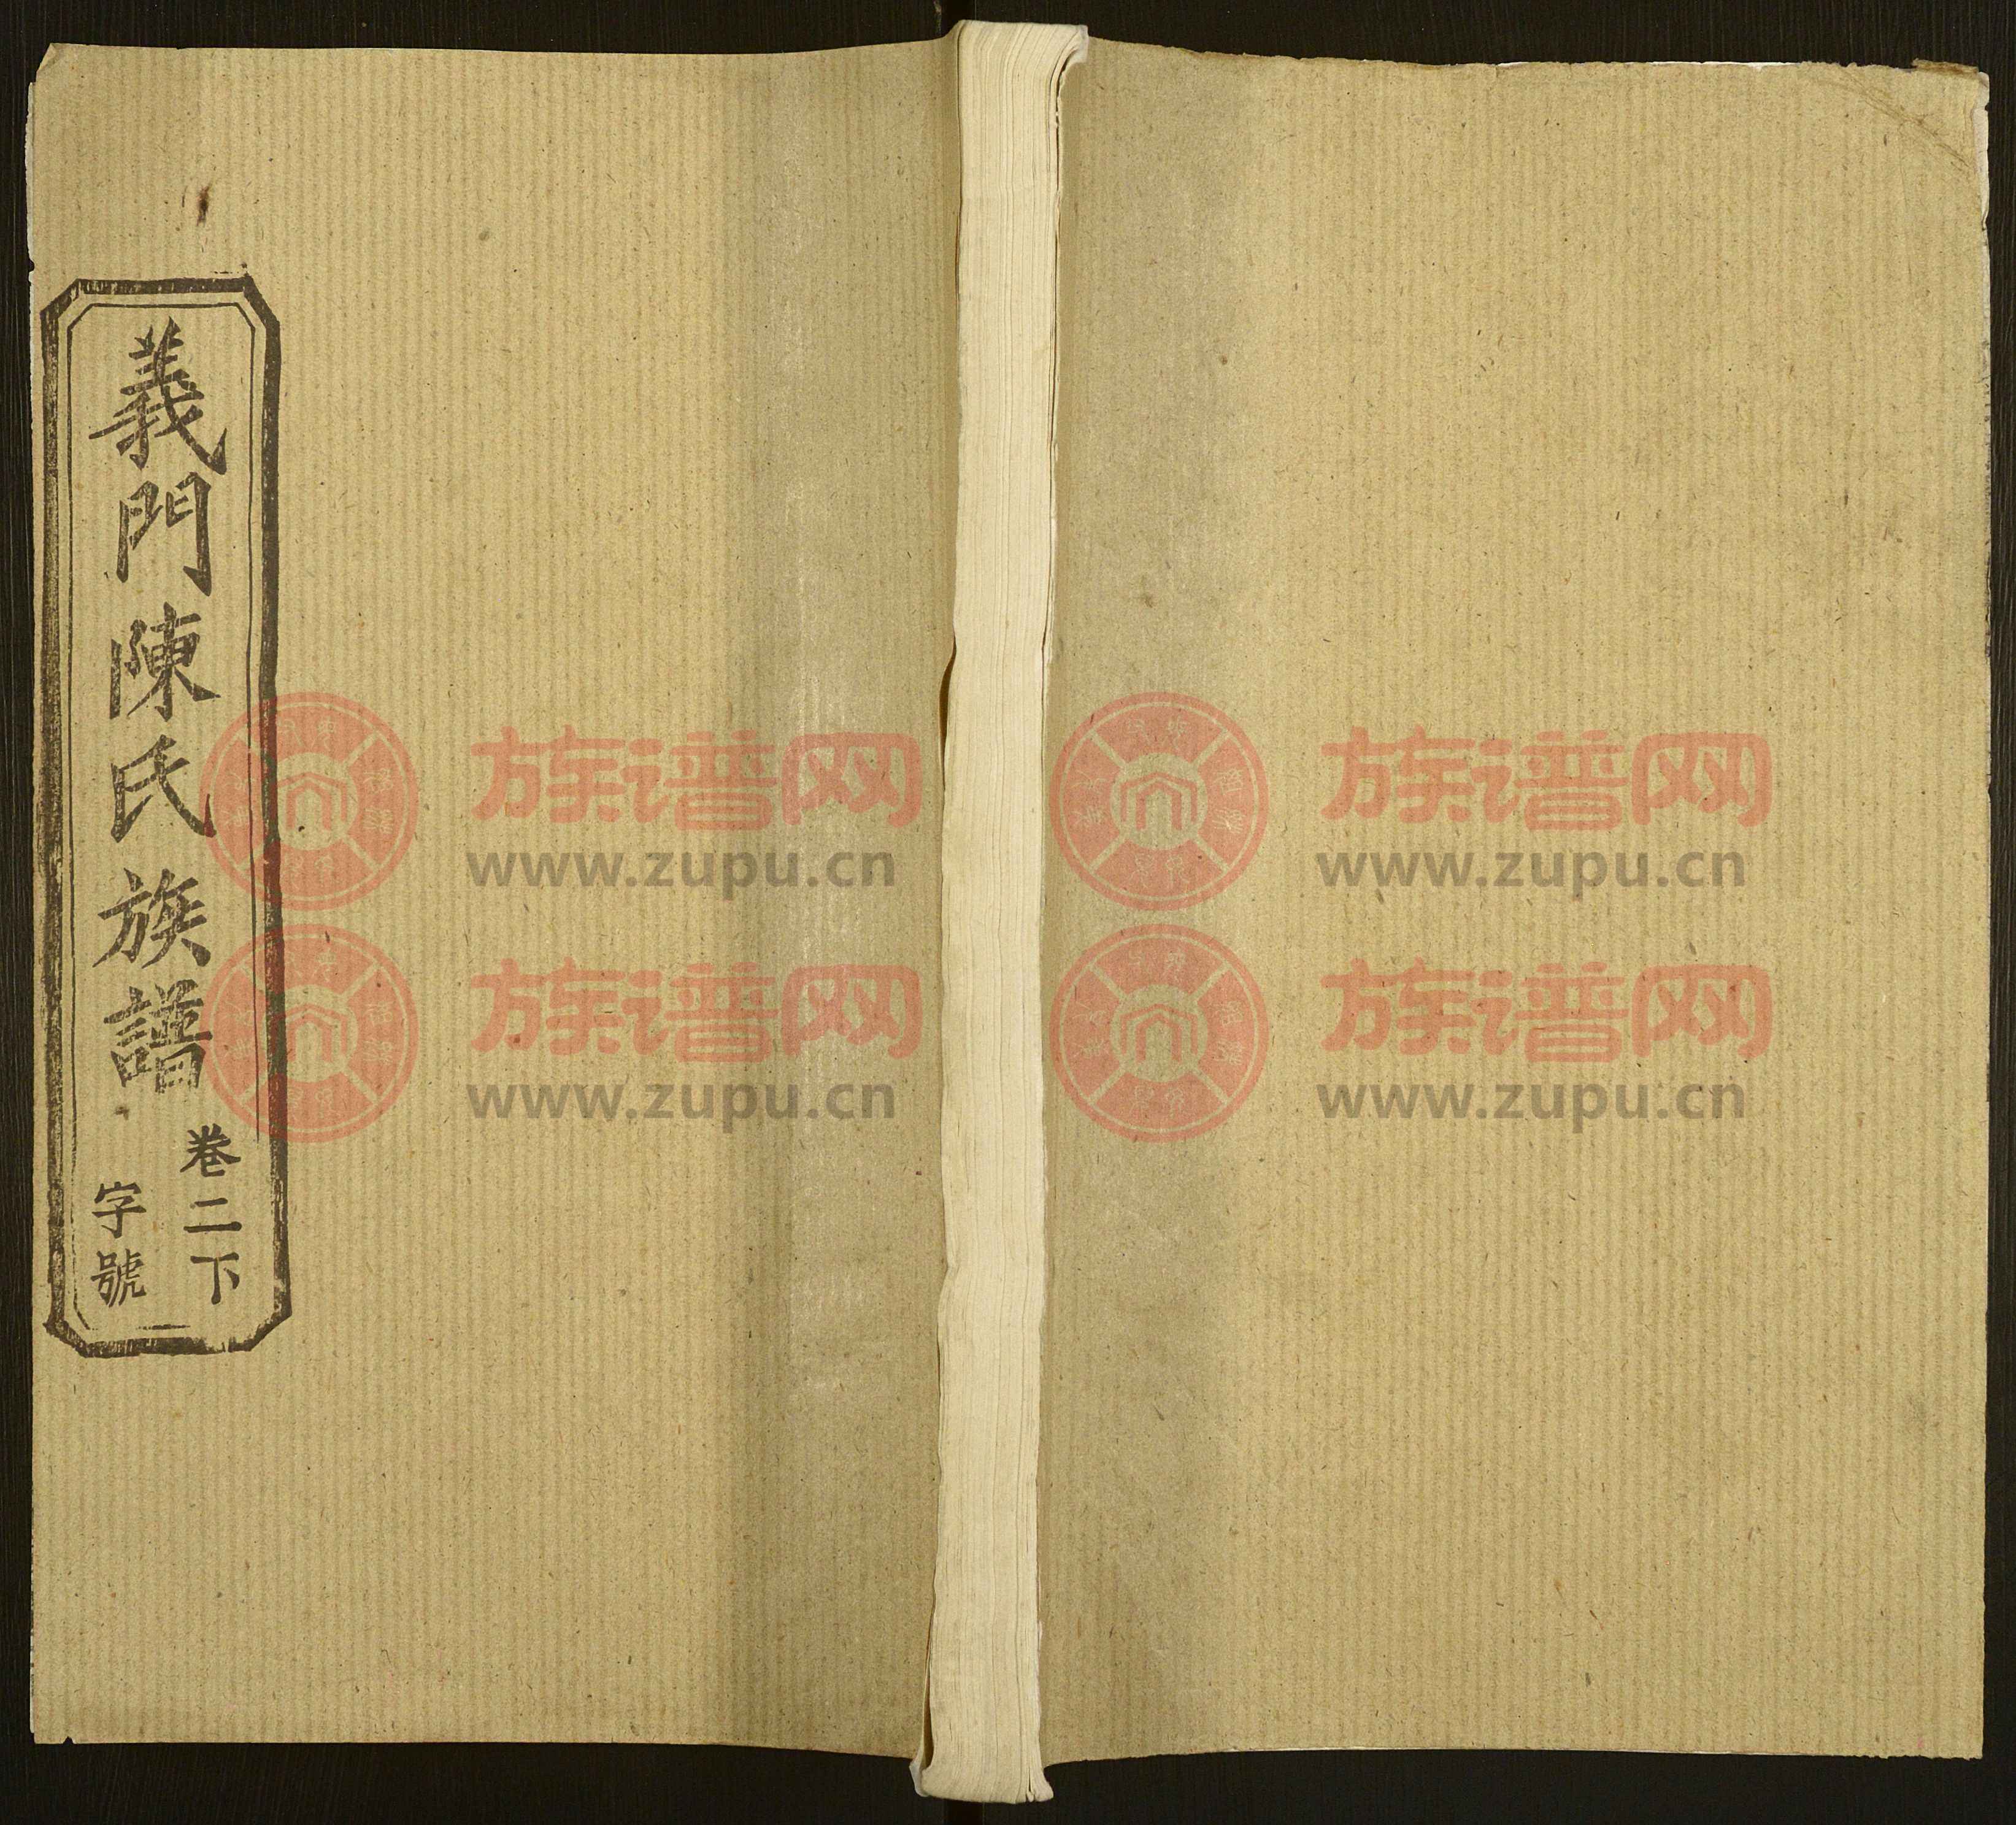 義門陳氏族譜
卷二下
字號
族谱网
www.zupu.cn
族谱网
www.zupu.cn
族谱网
www.zupu.cn
族谱网
www.zupu.cn